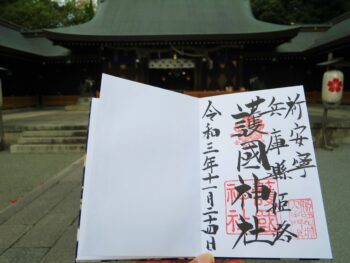 祈安寧
兵庫縣姫路
護國神社
令和三年十一月二十四日